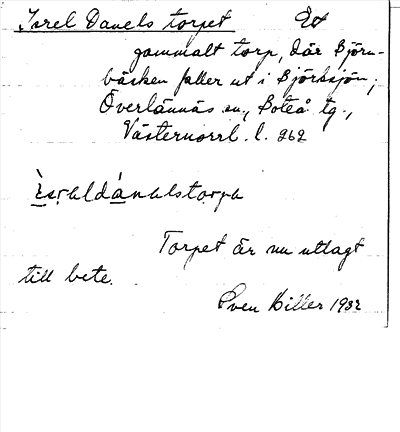 Isrel Danels torpet Ett
gammalt torp, där Björn-
bäcken faller ut i Björksjön,
Överlännäs sn, Boteå tg.,
Västernorrl. l. 262
Torpet är nu utlagt
till bete.
Sven Hiller 1932